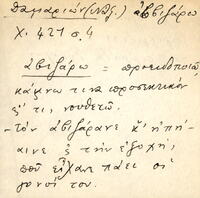 Δαμαριών (Νάξ.) ἀβιζάρω
Χ. 421 σ. 4
ἀβιζάρω = προειδοποιῶ,
κάμνω τινα προσεκτικόν
σ' τι, νουθετῶ.
- τὸν ἀβιζάρανε κ' ἠπή-
αινε σ τὴν ἐξοχή,
ποῦ εἴχανε πάει οἱ
γονοί του.